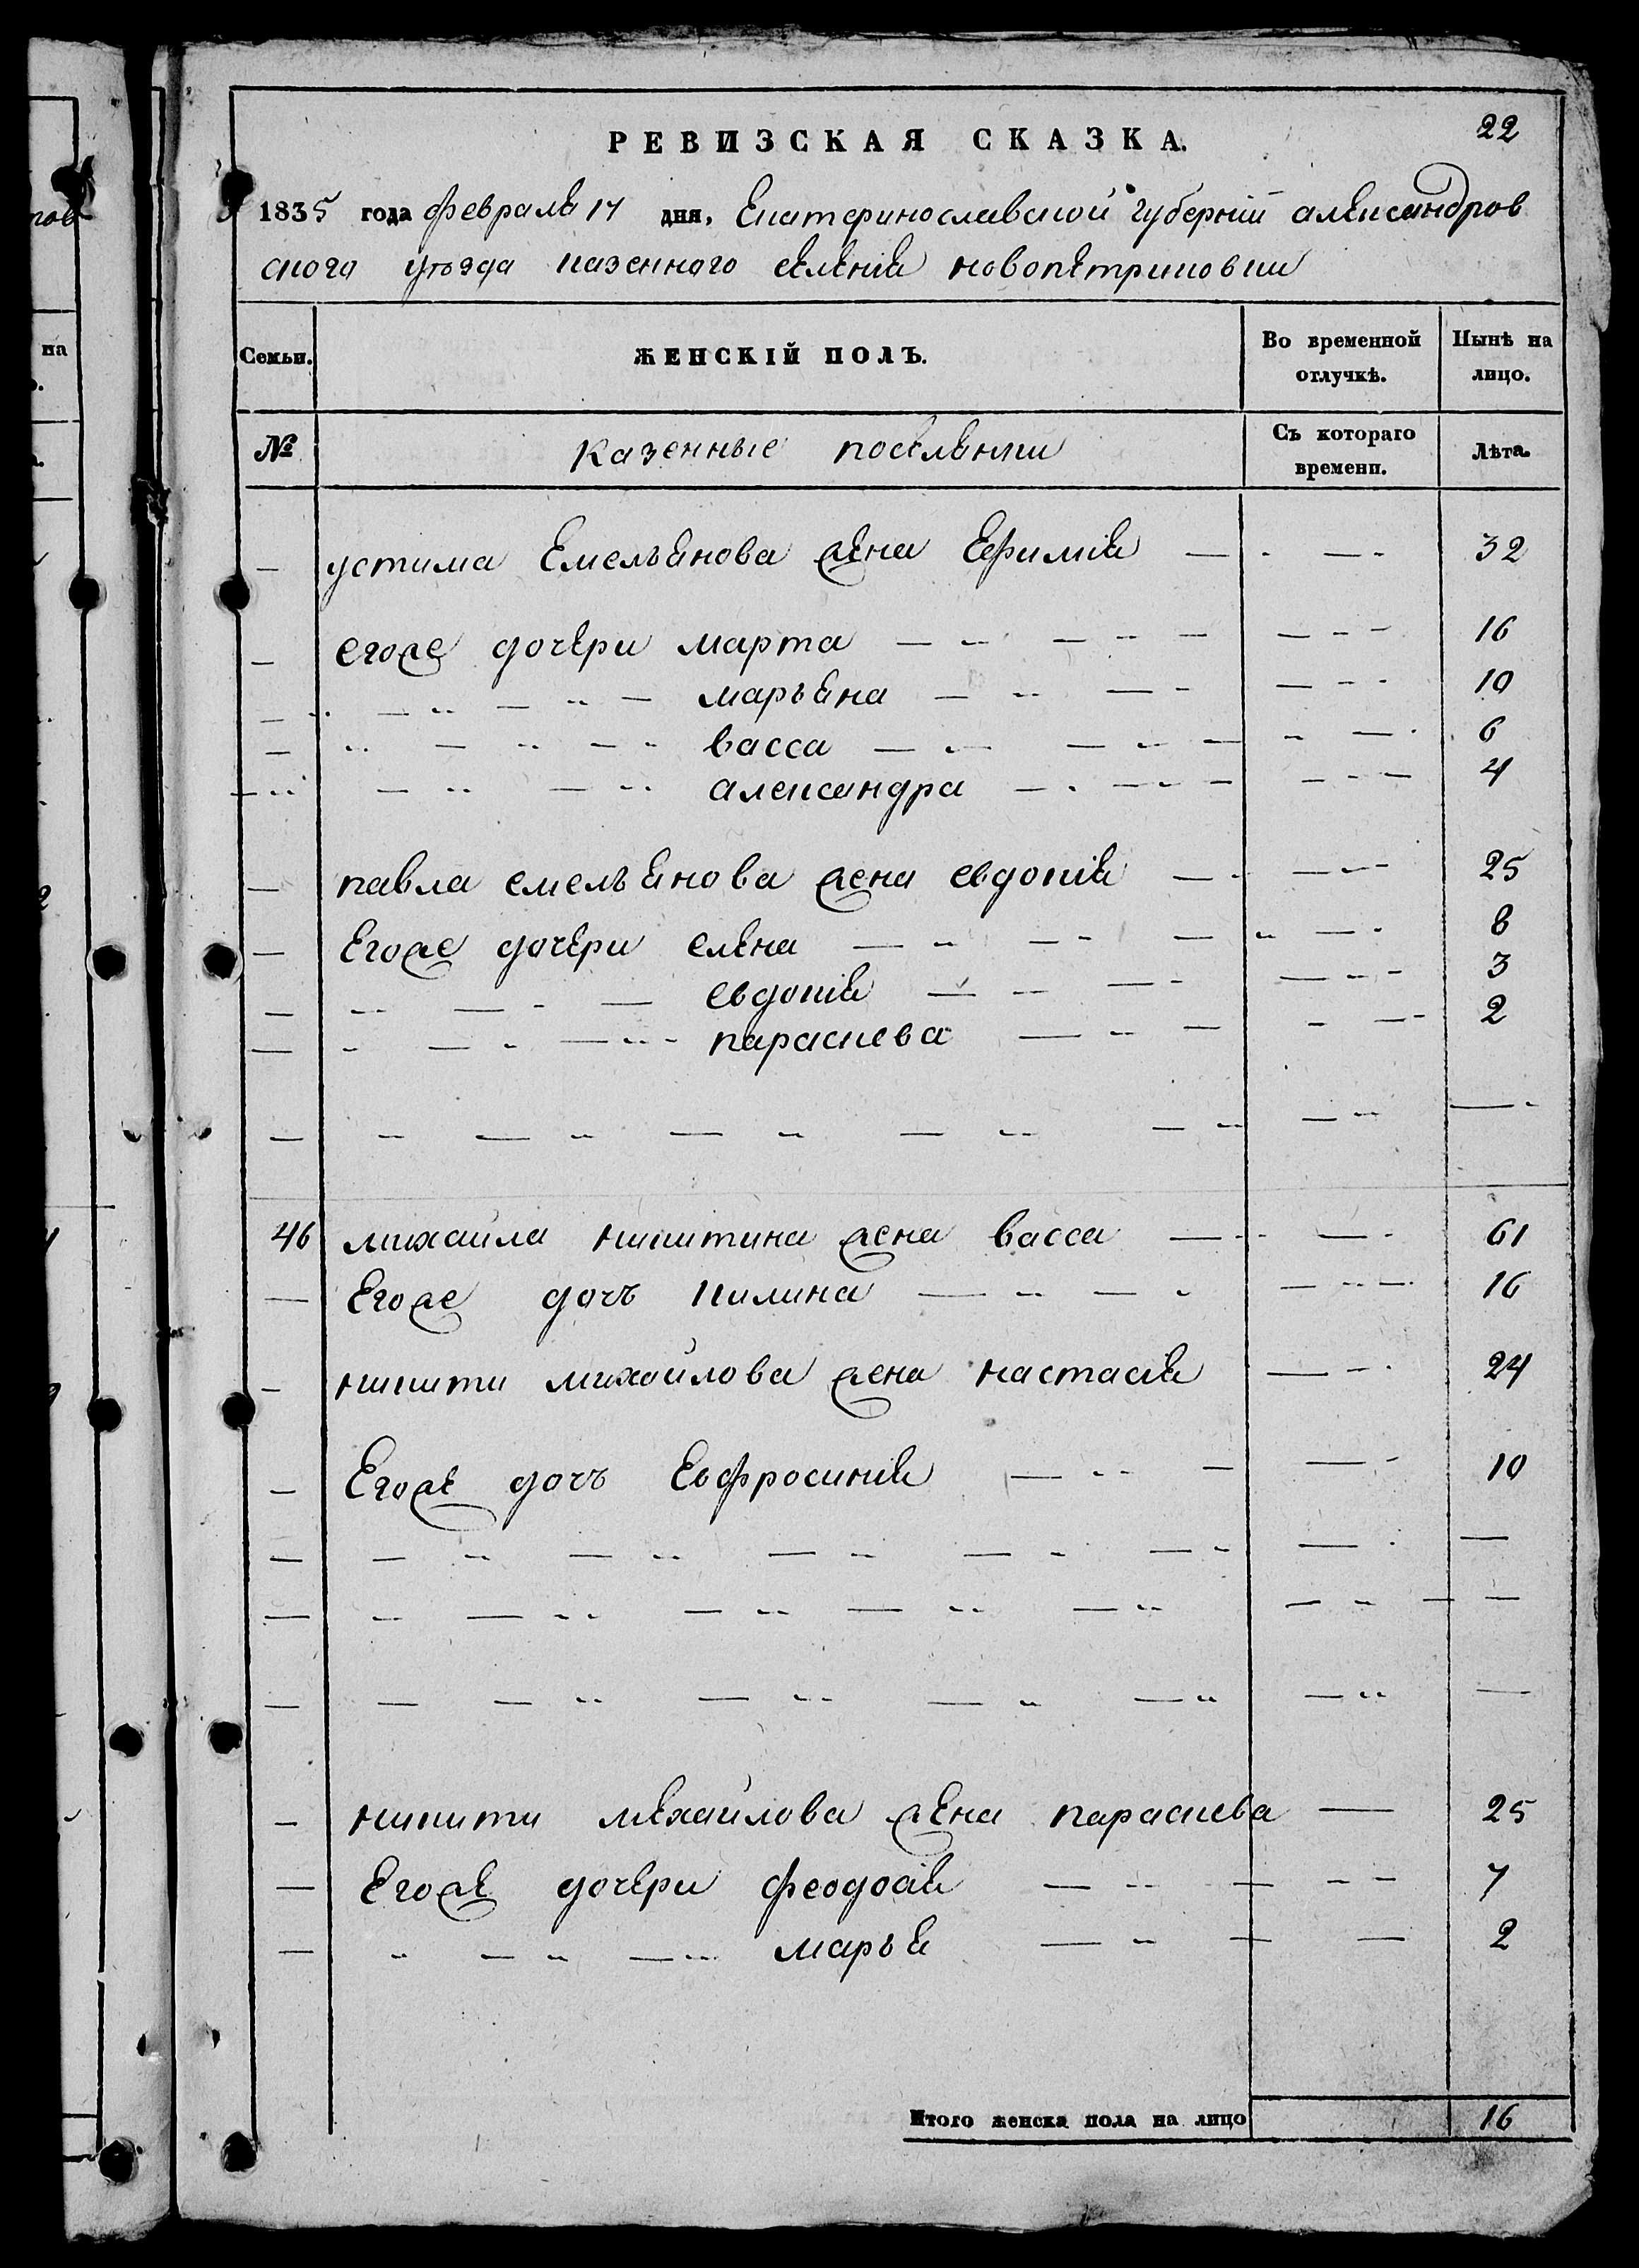 22
РЕВИЗСКАЯ СКАЗКА.
1835 года февраля 17 дня, Екатеринославской губернiи александров
ского уѣзда казенного селенiя новопетриковки
Семьи. ЖЕНСКIЙ ПОЛЪ. Во временной отлучкѣ. Нынѣ на лицо.
№ Казенные поселенки Съ котораго времени. Лѣта.
— устима Емельянова жена Ефимiя — - — - 32
— егоже дочери марта — - — - — — - - 16
— - — - — - — марьяна — - — - — - - 10
— - — - — - васса — - — - — - — - 6
— - — - — - александра — - — - — — - — 4
— павла емельянова жена евдокiя — - — - - 25
— Егоже дочери елена — - — - — - — - 8
— - — - — евдокiя — - — - — - - 3
— - — - — - параскева — - — - — - 2
— - — - — - — - — - — - — -
46 михайла никитина жена васса — - — - 61
— Егоже дочь килина — - — - — - — 16
— никити михайлова жена настасiя — - - 24
— Егоже дочь Евфросинiя — - — — - 10
— — - — - — - — - — - — - —
— - — - — - — - — - — - — —
— — — - — - — - — - — - —
— никити михайлова жена параскева — 25
— Егоже дочери феодосiя — - — - - 7
— - — - — - марья — - — — 2
Итого женска пола на лицо 16
на